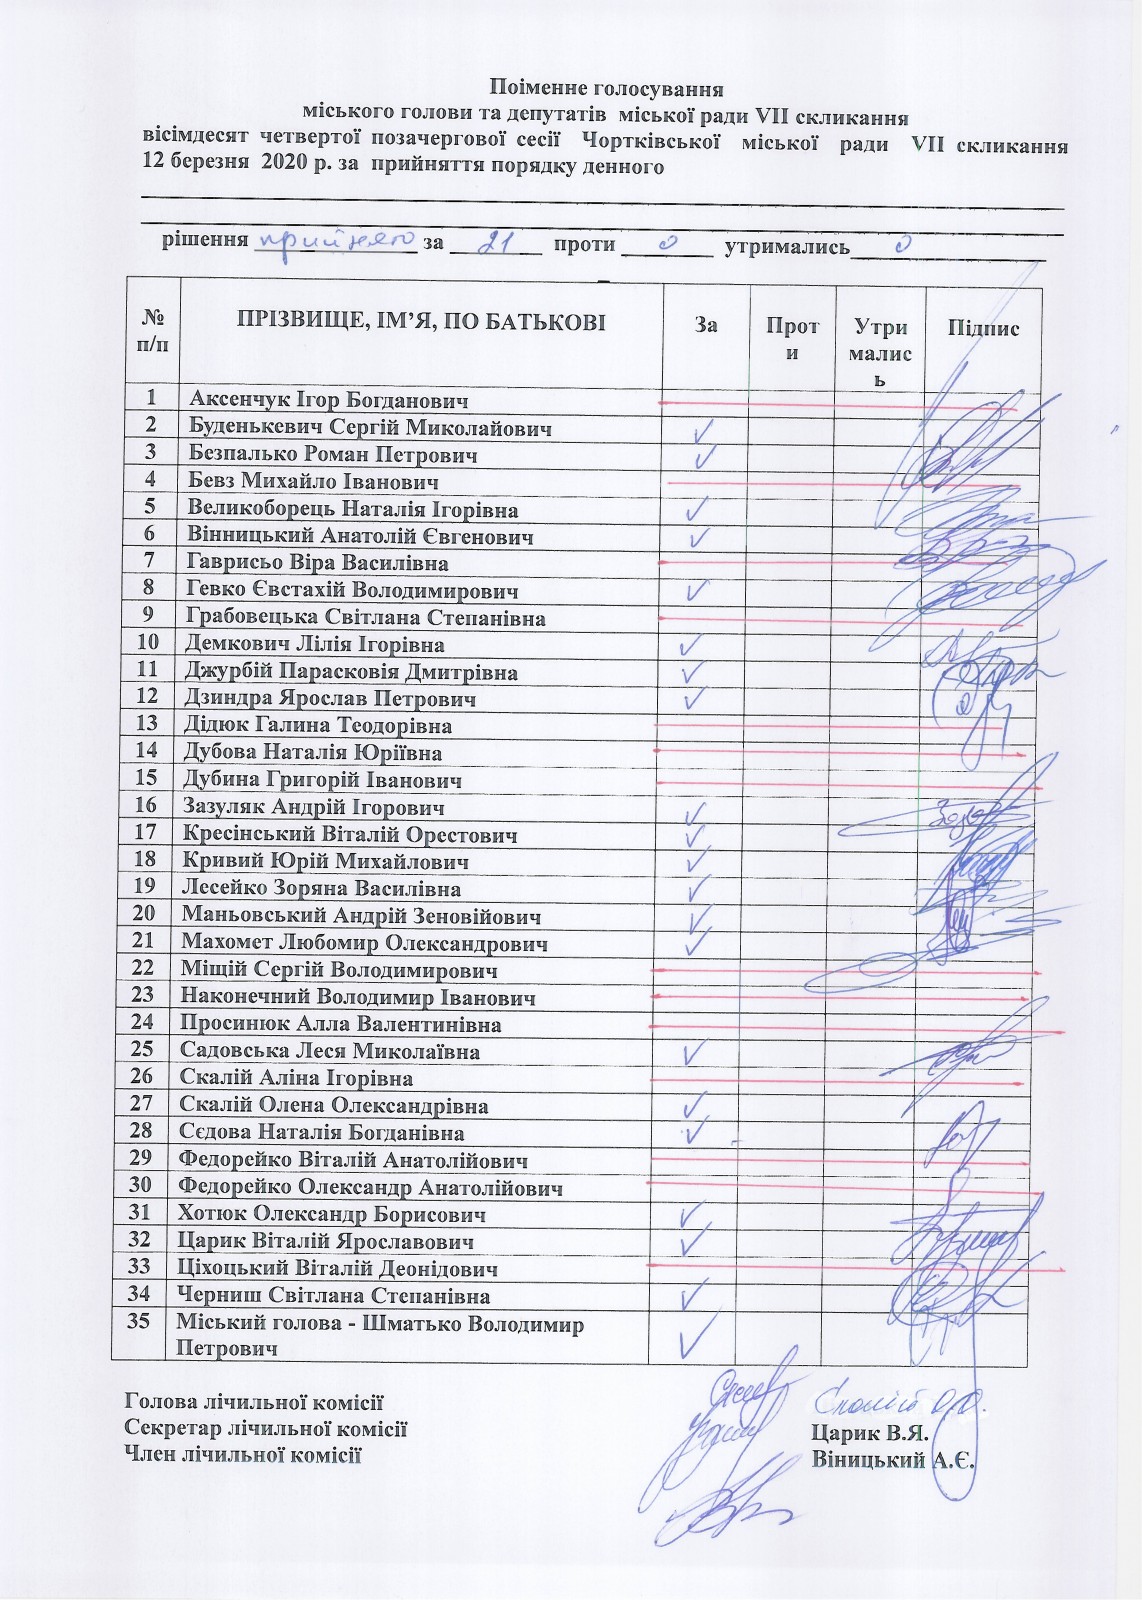 Поіменне голосування
міського голови та депутатів міської ради VII скликання
вісімдесят четвертої позачергової сесії Чортківської міської ради VII скликання
12 березня 2020 р. за прийняття порядку денного
рішення прийнято за 21 проти 0 утримались 0
№ п/п ПРІЗВИЩЕ, ІМ’Я, ПО БАТЬКОВІ За Проти Утрималис ь Підпис
1 Аксенчук Ігор Богданович
2 Буденькевич Сергій Миколайович ✓
3 Безпалько Роман Петрович ✓
4 Бевз Михайло Іванович
5 Великоборець Наталія Ігорівна ✓
6 Вінницький Анатолій Євгенович ✓
7 Гаврисьо Віра Василівна
8 Гевко Євстахій Володимирович ✓
9 Грабовецька Світлана Степанівна
10 Демкович Лілія Ігорівна ✓
11 Джурбій Парасковія Дмитрівна ✓
12 Дзиндра Ярослав Петрович ✓
13 Дідюк Галина Теодорівна
14 Дубова Наталія Юріївна
15 Дубина Григорій Іванович
16 Зазуляк Андрій Ігорович ✓
17 Кресінський Віталій Орестович ✓
18 Кривий Юрій Михайлович ✓
19 Лесейко Зоряна Василівна ✓
20 Маньовський Андрій Зеновійович ✓
21 Махомет Любомир Олександрович ✓
22 Міщій Сергій Володимирович
23 Наконечний Володимир Іванович
24 Просинюк Алла Валентинівна
25 Садовська Леся Миколаївна ✓
26 Скалій Аліна Ігорівна
27 Скалій Олена Олександрівна ✓
28 Сєдова Наталія Богданівна ✓
29 Федорейко Віталій Анатолійович
30 Федорейко Олександр Анатолійович
31 Хотюк Олександр Борисович ✓
32 Царик Віталій Ярославович ✓
33 Ціхоцький Віталій Деонідович
34 Черниш Світлана Степанівна ✓
35 Міський голова - Шматько Володимир
Петрович ✓
Голова лічильної комісії Скалій О.О.
Секретар лічильної комісії Царик В.Я.
Член лічильної комісії Віницький А.Є.